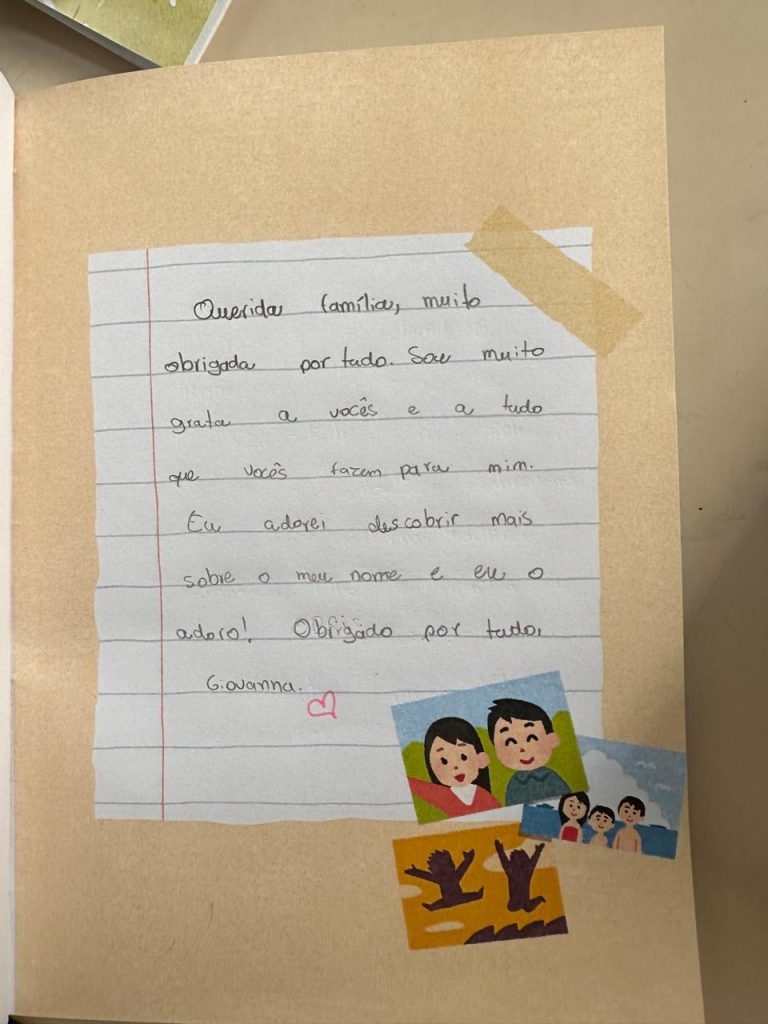 Querida família, muito
obrigada por tudo. Sou muito
grata a vocês e a tudo
que vocês fazem para mim.
Eu adorei descobrir mais
sobre o meu nome e eu o
adoro! Obrigado por tudo,
Giovanna.